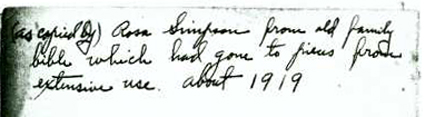 (as copied by) Rosa Simpson from old family
bible which had gone to pieces from
extensive use. about 1919